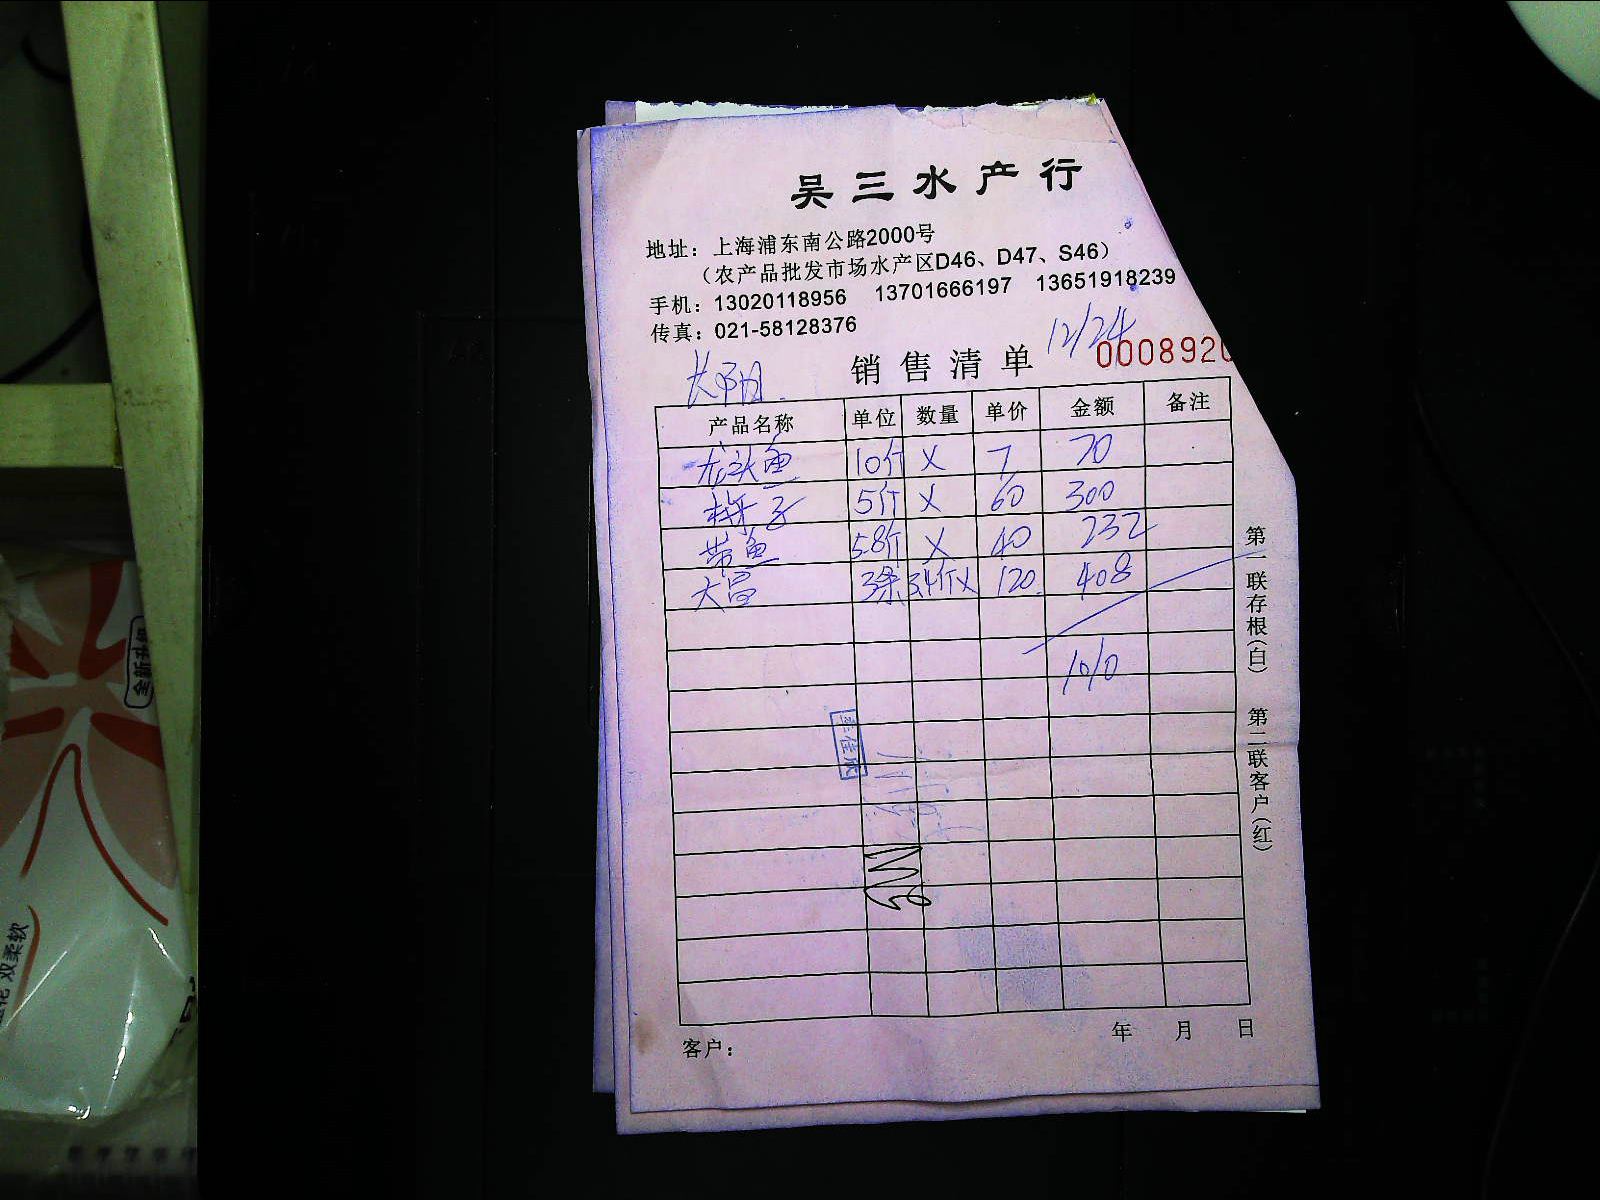 吴三水产行
地址：上海浦东南公路2000号
（农产品批发市场水产区D46、D47、S46）
手机：13020118956 13701666197 13651918239
传真：021-58128376
12/24
销售清单 0008920
产品名称 单位 数量 单价 金额 备注
龙头鱼 10斤 X 7 70
梅子 5斤 X 60 300
带鱼 5.8斤 X 40 232
大昌 3条 3.4斤X 120. 408
1010
第一联存根（白） 第二联客户（红）
年 月 日
客户：
全新升级
双柔软